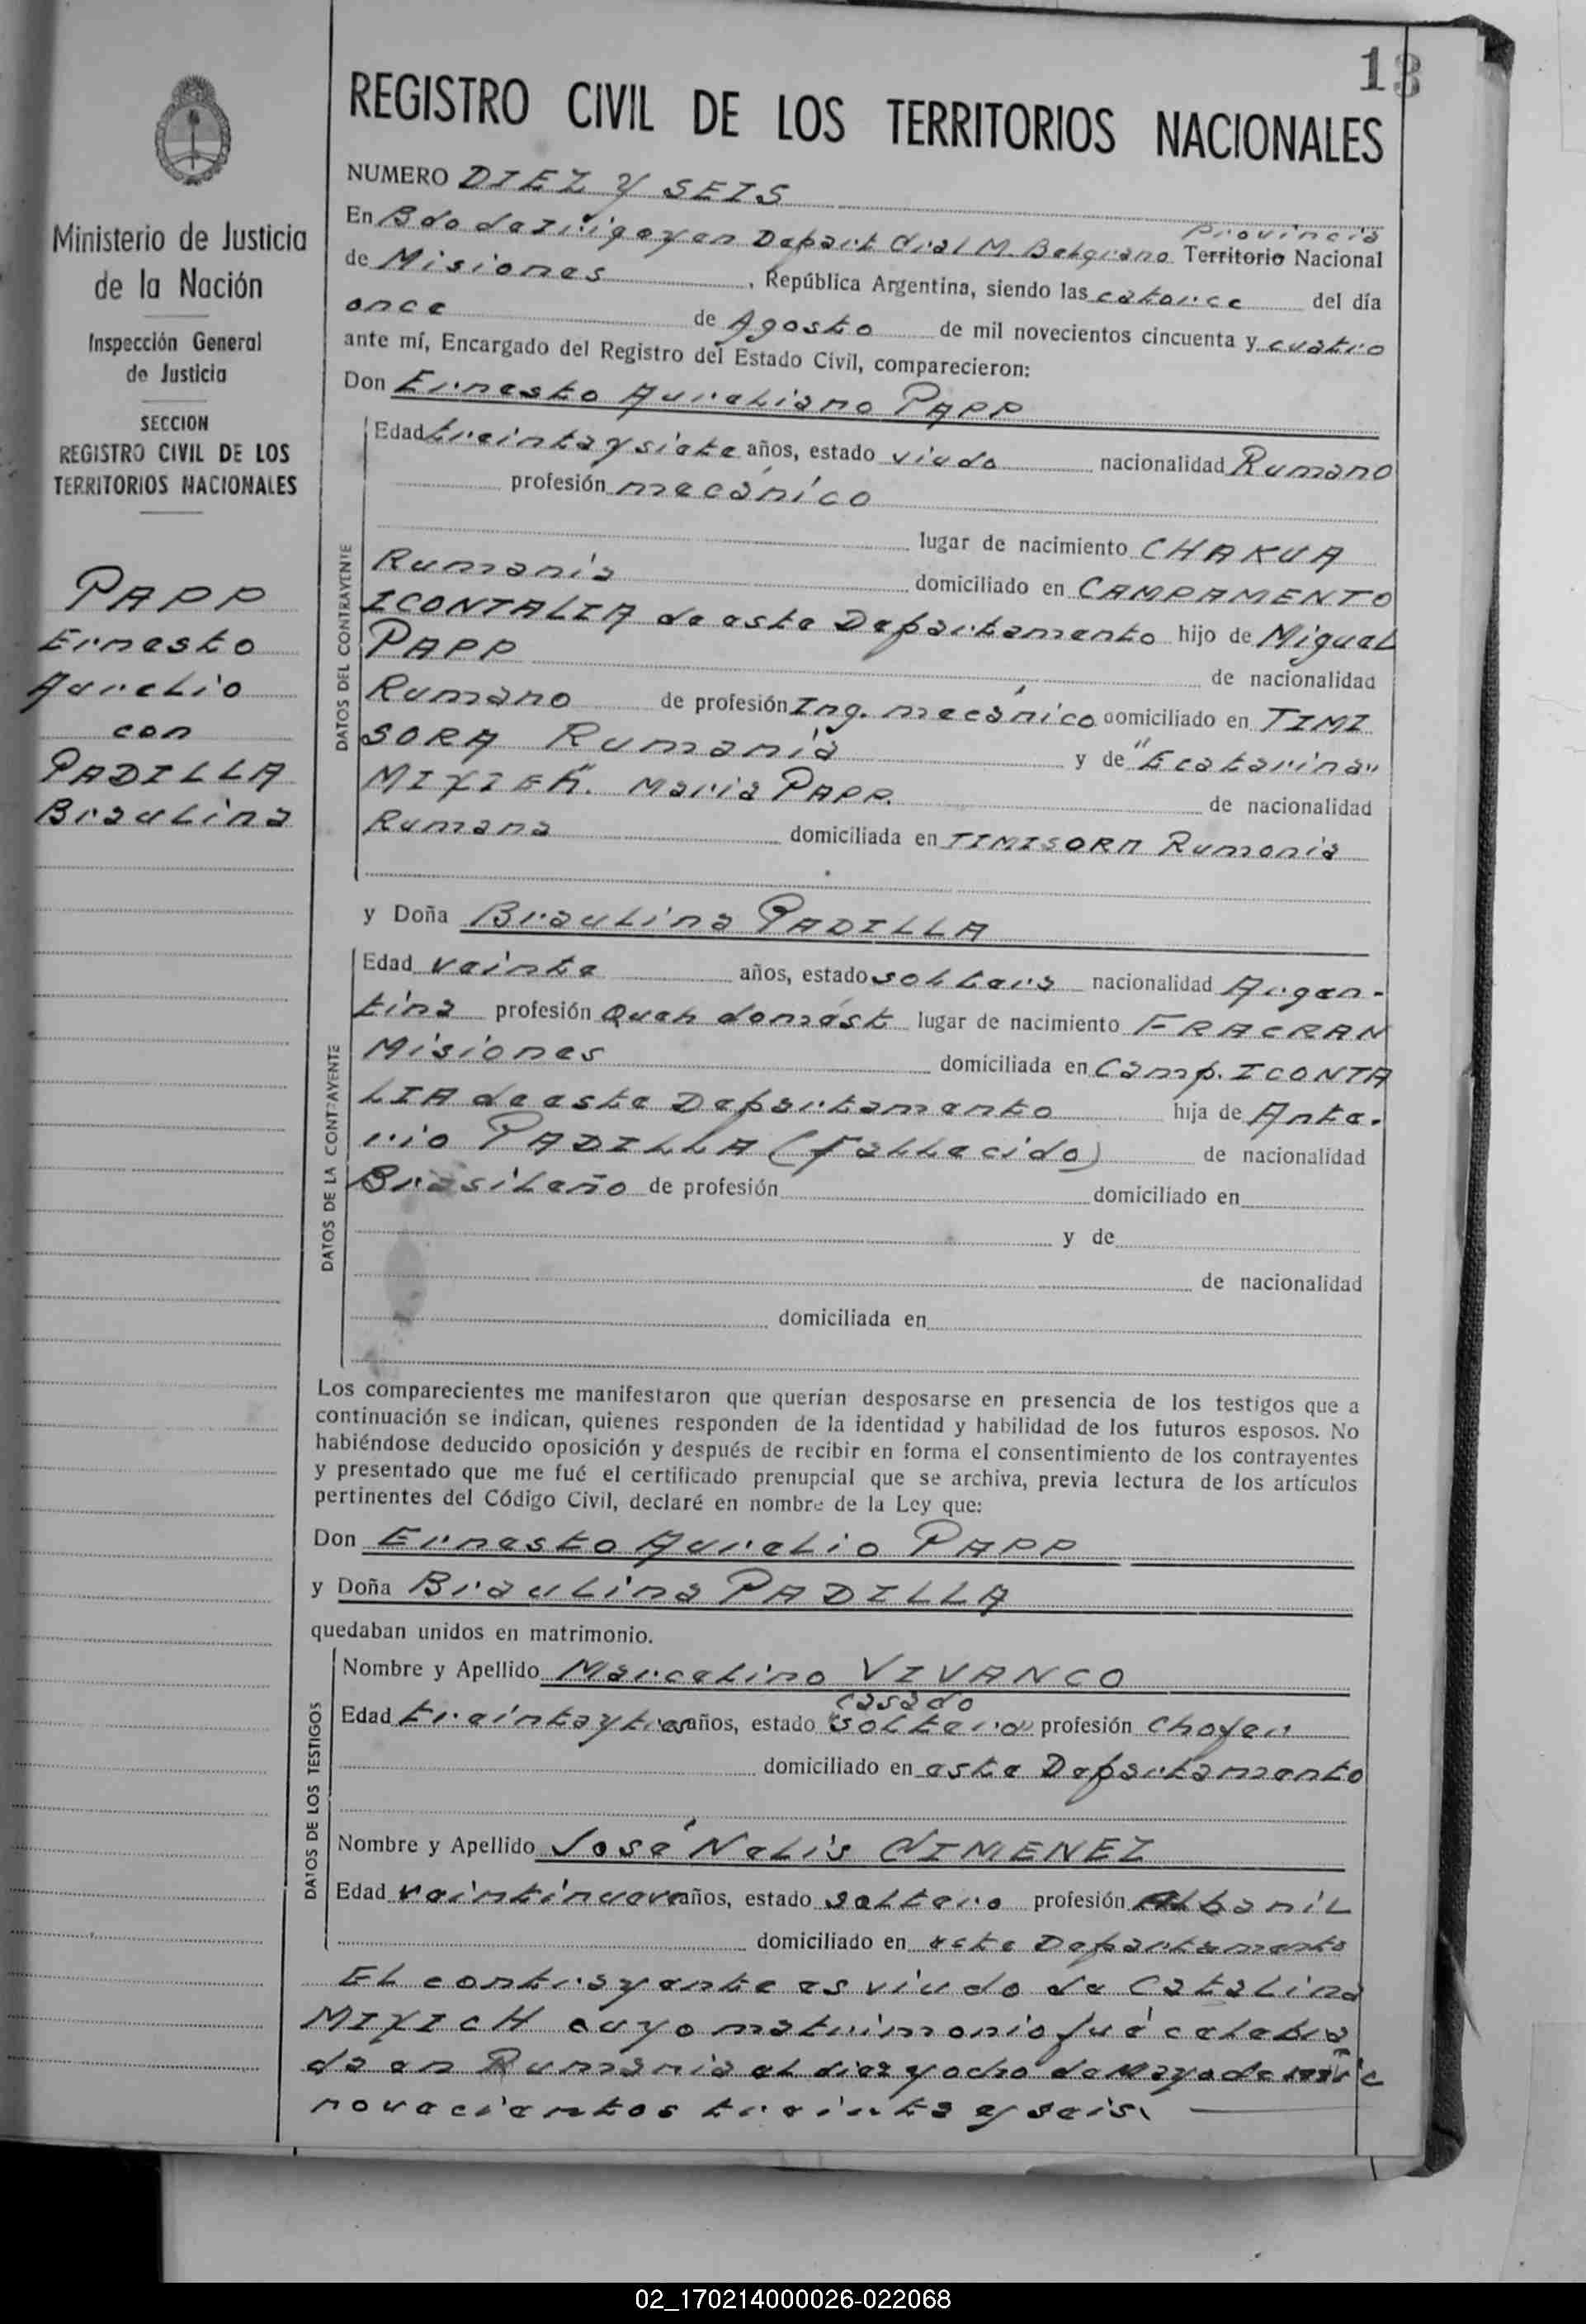 13
REGISTRO CIVIL DE LOS TERRITORIOS NACIONALES
Ministerio de Justicia
de la Nación
Inspección General
de Justicia
SECCION
REGISTRO CIVIL DE LOS
TERRITORIOS NACIONALES
PAPP
Ernesto
Aurelio
con
PADILLA
Braulina
NUMERO DIEZ Y SEIS
Provincia
En Bdo de Irigoyen Depart Gral M. Belgrano Territorio Nacional
de Misiones, República Argentina, siendo las catorce del día
once de Agosto de mil novecientos cincuenta y cuatro
ante mí, Encargado del Registro del Estado Civil, comparecieron:
Don Ernesto Aureliano PAPP
DATOS DEL CONTRAYENTE
Edad treinta y siete años, estado viudo nacionalidad Rumano
profesión mecánico
lugar de nacimiento CHAKUA
Rumania domiciliado en CAMPAMENTO
ICONTALIA de este Departamento hijo de Miguel
PAPP de nacionalidad
Rumano de profesión Ing. mecánico domiciliado en TIMI
SORA Rumania y de "Ecatarina"
MIXIEH". Maria PAPP. de nacionalidad
Rumana domiciliada en TIMISORA Rumania
y Doña Braulina PADILLA
DATOS DE LA CONTRAYENTE
Edad veinte años, estado soltera nacionalidad Argen-
tina profesión Queh domést lugar de nacimiento FRACRAN
Misiones domiciliada en Camp. ICONTA
LIA de este Departamento hija de Ante-
rio PADILLA (Fallecido) de nacionalidad
Brasileño de profesión domiciliado en
y de
de nacionalidad
domiciliada en
Los comparecientes me manifestaron que querían desposarse en presencia de los testigos que a
continuación se indican, quienes responden de la identidad y habilidad de los futuros esposos. No
habiéndose deducido oposición y después de recibir en forma el consentimiento de los contrayentes
y presentado que me fué el certificado prenupcial que se archiva, previa lectura de los artículos
pertinentes del Código Civil, declaré en nombre de la Ley que:
Don Ernesto Aurelio PAPP
y Doña Braulina PADILLA
quedaban unidos en matrimonio.
DATOS DE LOS TESTIGOS
Nombre y Apellido Marcelino VIVANCO
casado
Edad treinta y tres años, estado "soltero" profesión Chofer
domiciliado en este Departamento
Nombre y Apellido José Nelis GIMENEZ
Edad veintinueve años, estado soltero profesión Albanil
domiciliado en este Departamento
El contrayente es viudo de Catalina
MIXICH cuyo matrimonio fué celebra
do en Rumania el diez y ocho de Mayo de mil
novecientos treinta y seis.
02_170214000026-022068